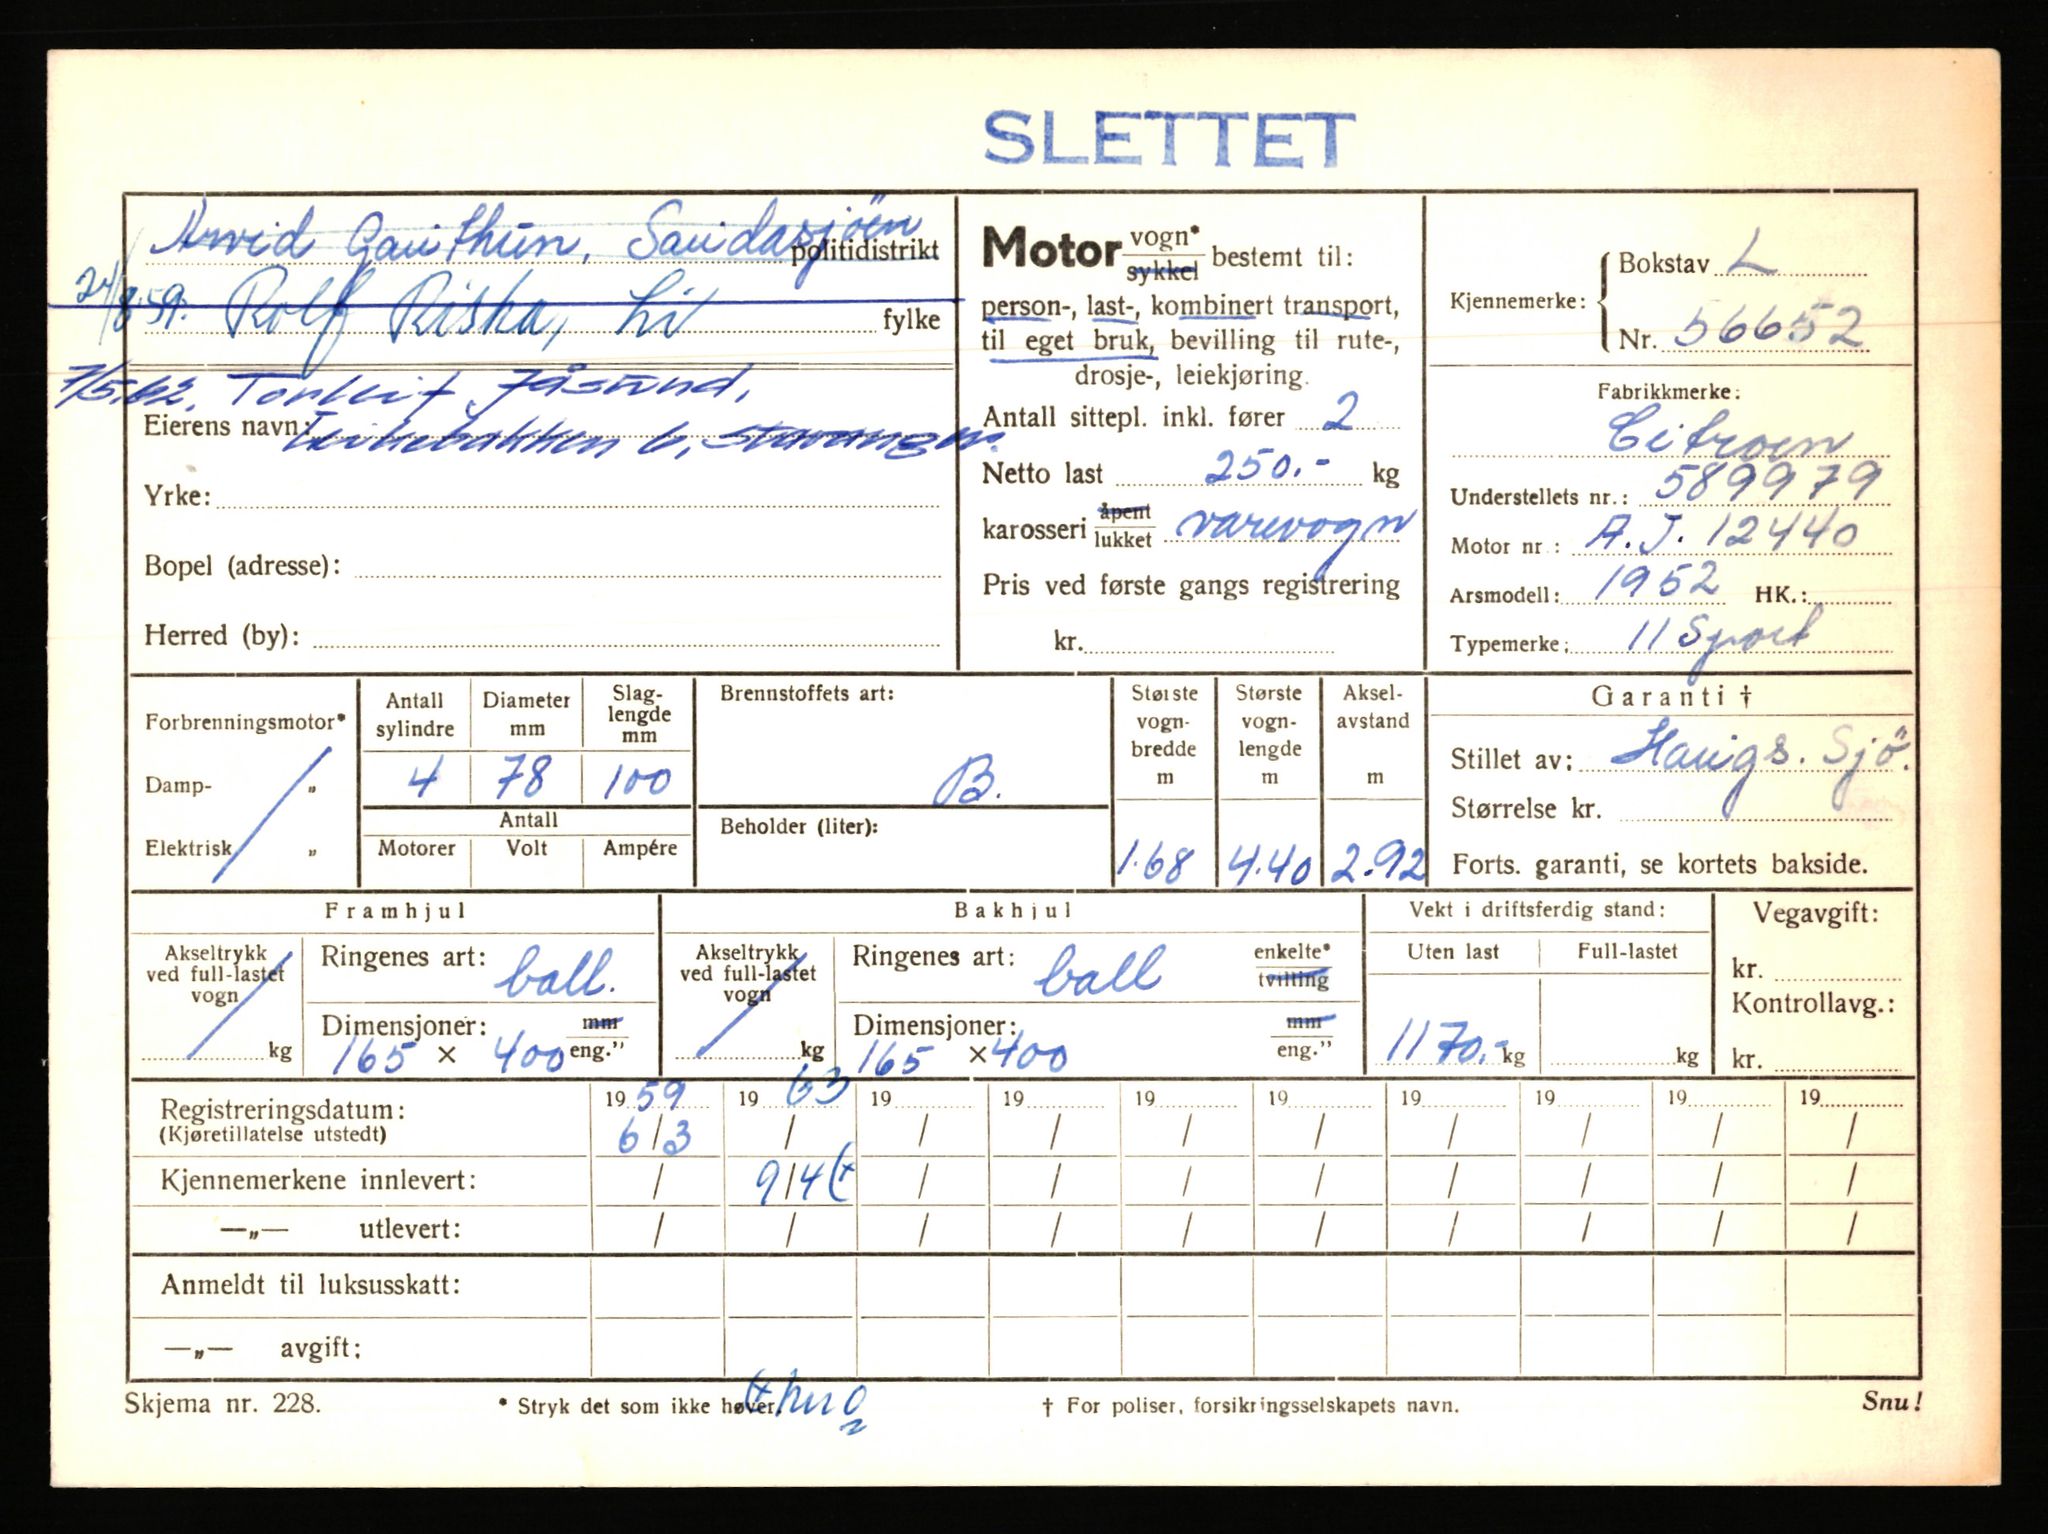 SLETTET
Arvid Gauthun, Saudasjöen politidistrikt
24/8.59. Rolf Riska, Li fylke
7/5.62. Torleif Jåsund,
Eierens navn: 6, Stavanger.
Yrke:
Bopel (adresse):
Herred (by):
Motor vogn* sykkel bestemt til:
person-, last-, kombinert transport,
til eget bruk, bevilling til rute-,
drosje-, leiekjøring.
Antall sittepl. inkl. fører 2
Netto last 250.- kg
karosseri åpent lukket varevogn
Pris ved første gangs registrering
kr.
Kjennemerke: Bokstav L
Nr. 56652
Fabrikkmerke:
Citroen
Understellets nr.: 589979
Motor nr: A.J. 12440
Arsmodell: 1952 HK.:
Typemerke: 11 Sport
Forbrenningsmotor*
Damp- "
Elektrisk "
Antall sylindre
Diameter mm
Slag-
lengde
mm
4 78 100
Antall
Motorer Volt Ampére
Brennstoffets art:
B.
Beholder (liter):
Største
vogn-
bredde
m
1.68
Største
vogn-
lengde
m
4.40
Aksel-
avstand
m
2.92
Garanti †
Stillet av: Haugs. Sjö.
Størrelse kr.
Forts. garanti, se kortets bakside.
Framhjul
Akseltrykk
ved full-lastet
vogn
kg
Ringenes art: ball.
Dimensjoner: mm
165 × 400 eng."
Bakhjul
Akseltrykk
ved full-lastet
vogn
kg
Ringenes art: ball enkelte* tvilling
Dimensjoner: mm
165 × 400 eng."
Vekt i driftsferdig stand:
Uten last Full-lastet
1170.- kg kg
Vegavgift:
kr.
Kontrollavg.:
kr.
Registreringsdatum: 19 59 19 63 19 19 19 19 19 19 19 19
(Kjøretillatelse utstedt) 6/3 / / / / / / / / /
Kjennemerkene innlevert: / 9/4 (x / / / / / / / /
—„— utlevert: / / / / / / / / / /
Anmeldt til luksusskatt:
—„— avgift:
Skjema nr. 228.
* Stryk det som ikke høver.
† For poliser, forsikringsselskapets navn.
Snu!